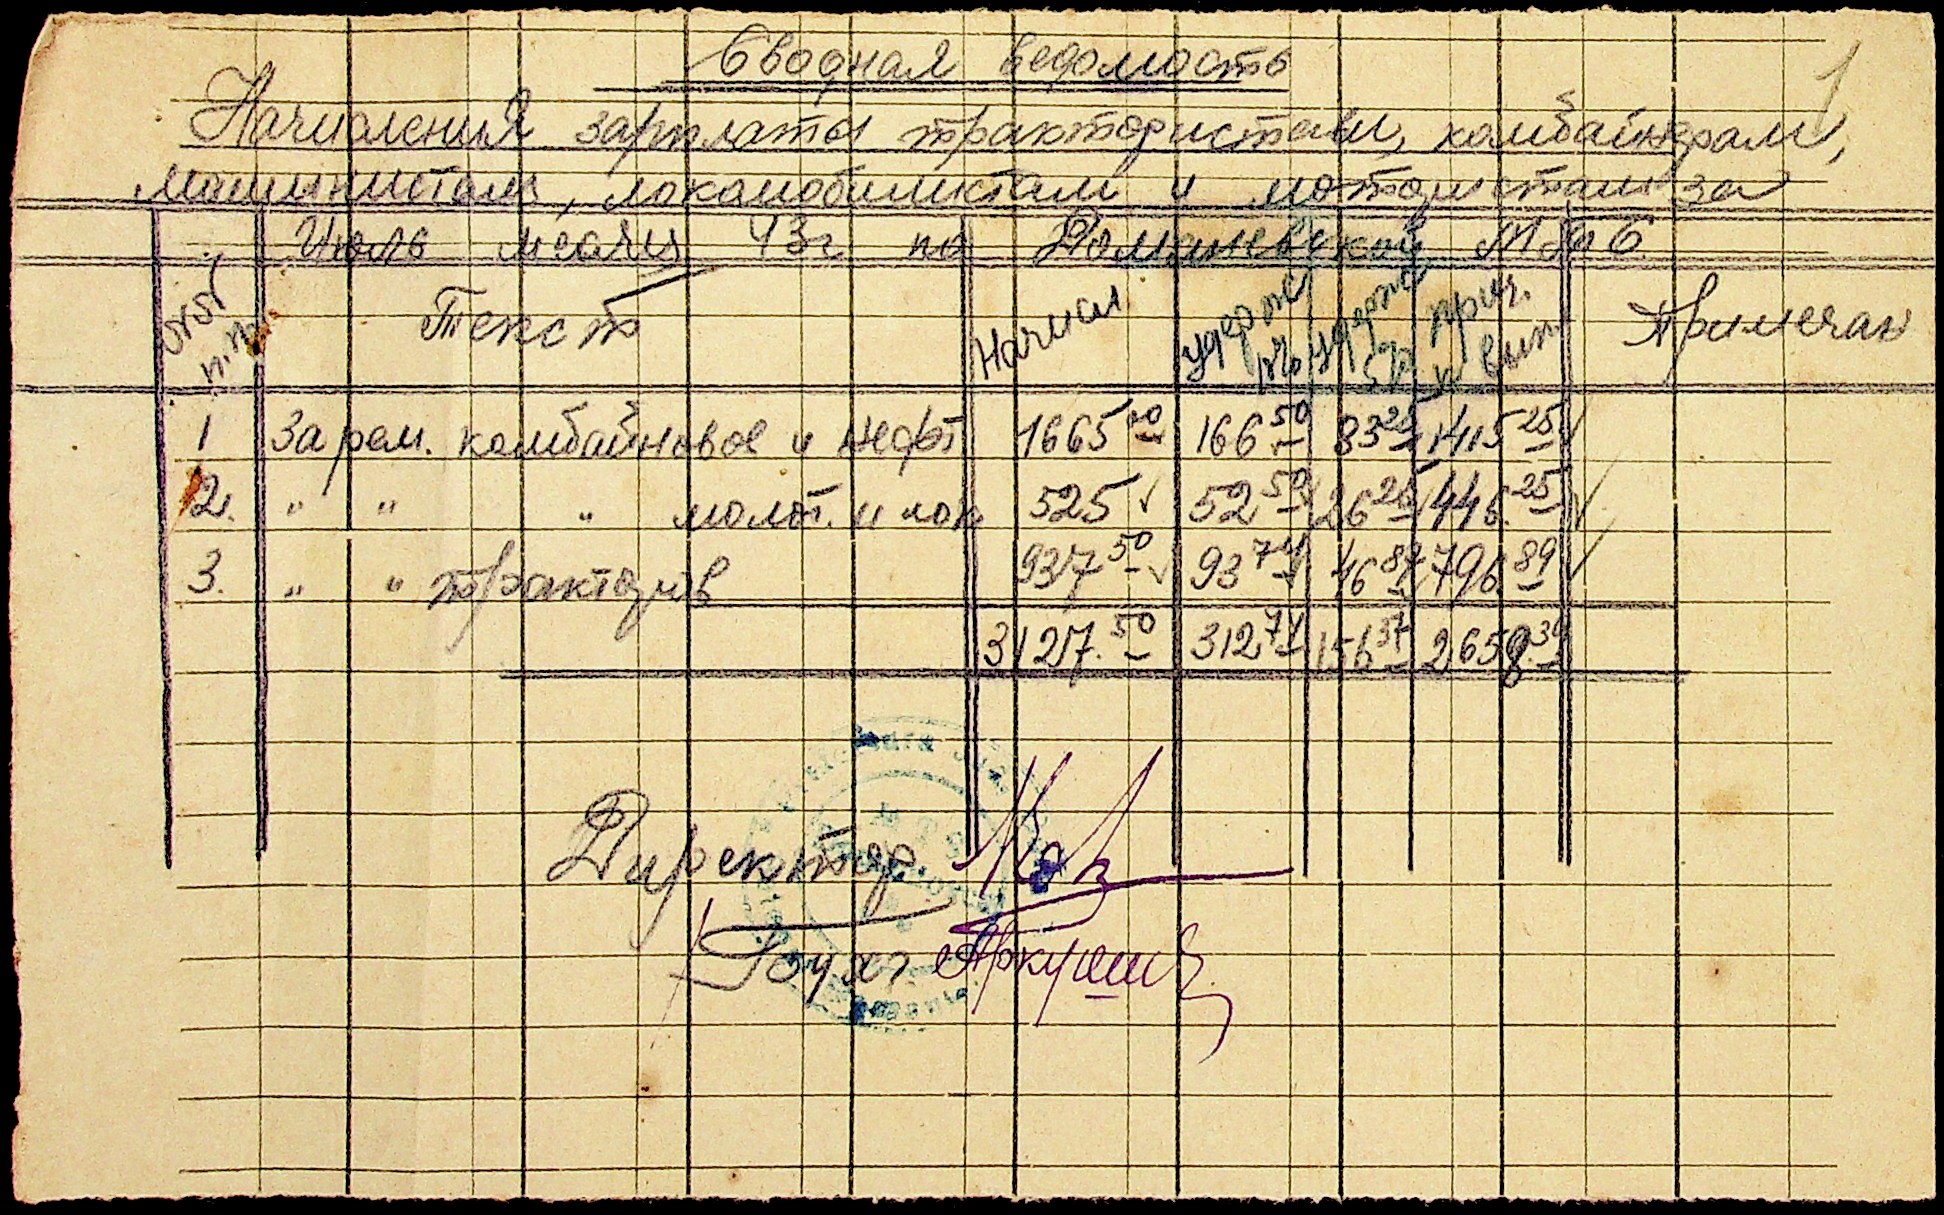 1
Сводная ведомость
Начисления зарплаты трактористам, комбайнерам,
машинистам, локомобилистам и мотористам за
Июль месяц 43г по Доманевской МТС
№№ п.п. Текст Начисл удерж 10% удерж 5% прич. к вып. Примечан
1 За рем. комбайновое и нефт 1665 00 166 50 83 25 1415 25
2. " " " молот. и лок 525 52 50 26 25 446. 25
3. " " тракторов 937 50 93 74 46 87 796. 89
3127. 50 312 74 156 37 2658. 39
Директор.
Гбухг Аркуши